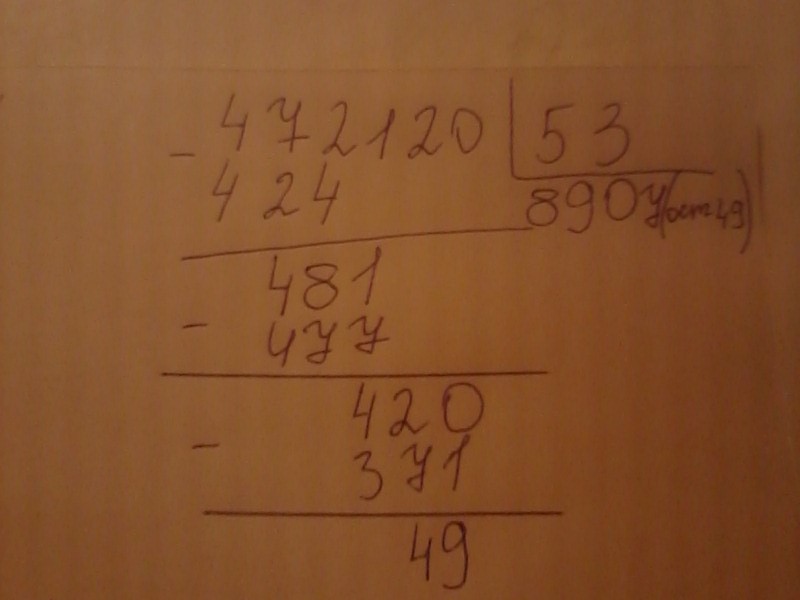 - 472120 | 53
424 8907(ост 49)
481
- 477
420
- 371
49